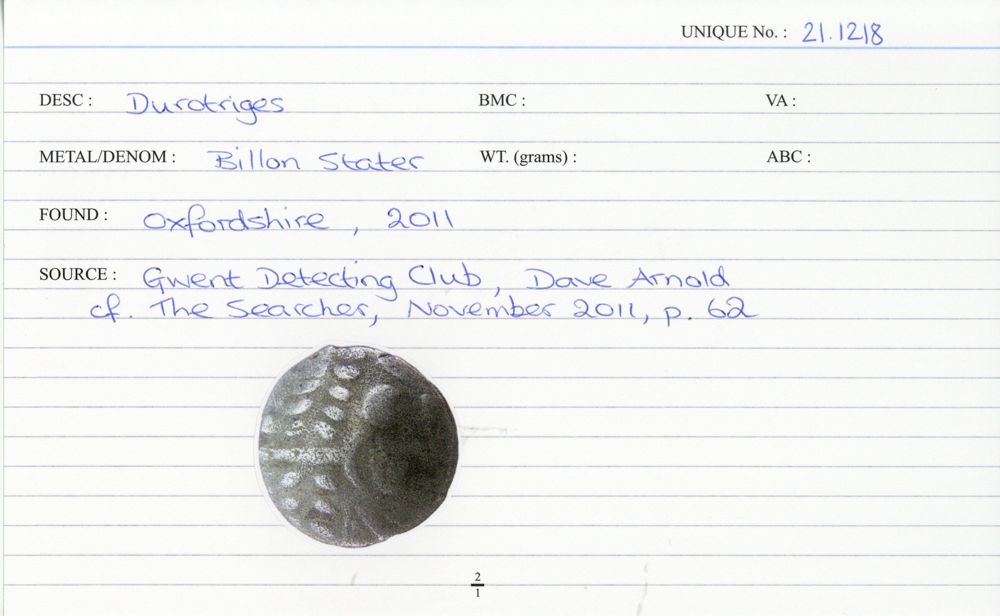 UNIQUE No. : 21.1218
DESC : Durotriges BMC : VA :
METAL/DENOM : Billon Stater WT. (grams) : ABC :
FOUND : Oxfordshire, 2011
SOURCE : Gwent Detecting Club, Dave Arnold
cf. The Searcher, November 2011, p. 62
2
1